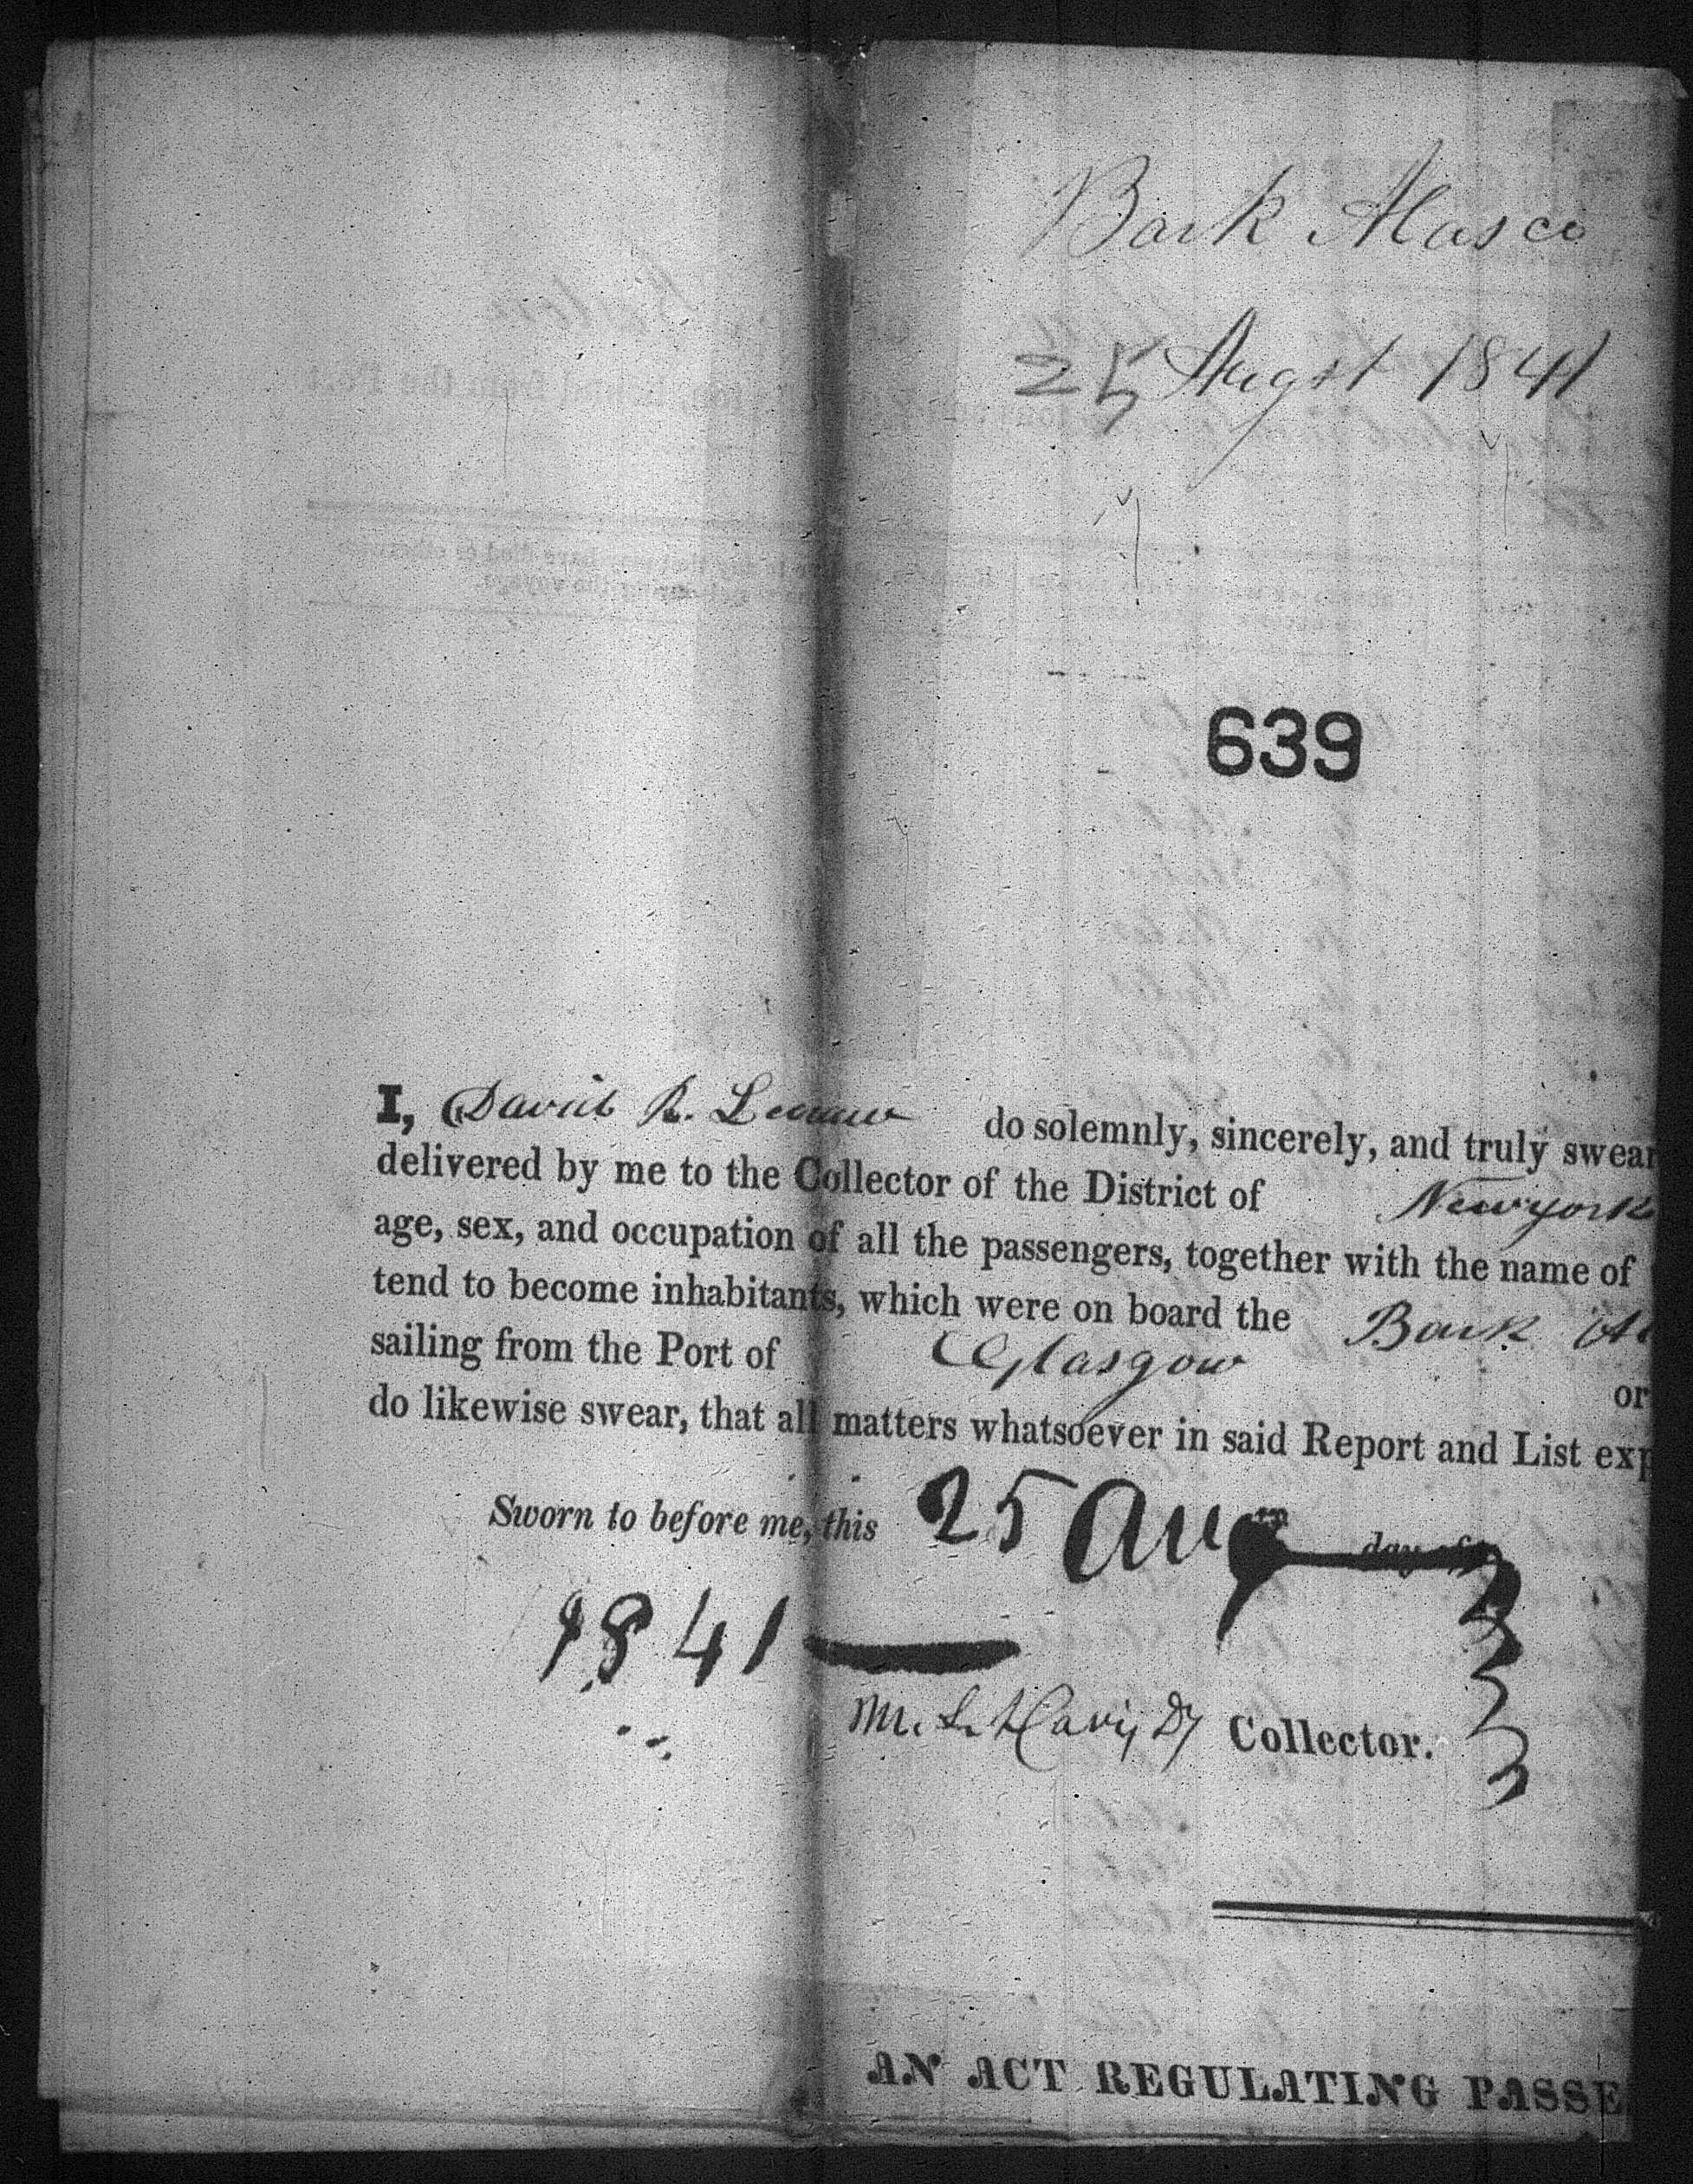 Bark Alasco
25 Augst 1841
639
I, David R. do solemnly, sincerely, and truly swear
delivered by me to the Collector of the District of Newyork
age, sex, and occupation of all the passengers, together with the name of
tend to become inhabitants, which were on board the Bark Al
sailing from the Port of Glasgow
or
do likewise swear, that all matters whatsoever in said Report and List exp
Sworn to before me, this 25 Aug day of
1841
Collector.
AN ACT REGULATING PASSE